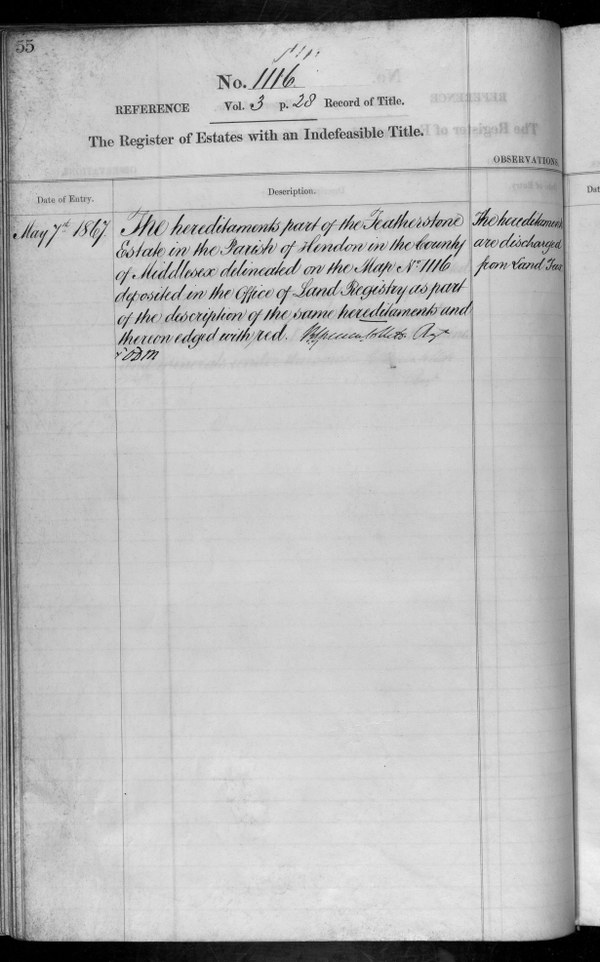 55
No. 1116
REFERENCE Vol. 3 p. 28 Record of Title.
The Register of Estates with an Indefeasible Title.
OBSERVATIONS.
Date of Entry.
Description.
Dat
May 7th 1867.
The hereditaments part of the Featherstone
Estate in the Parish of Hendon in the County
of Middlesex delineated on the Map No. 1116
deposited in the Office of Land Registry as part
of the description of the same hereditaments and
thereon edged with red.
The hereditaments
are discharged
from Land Tax